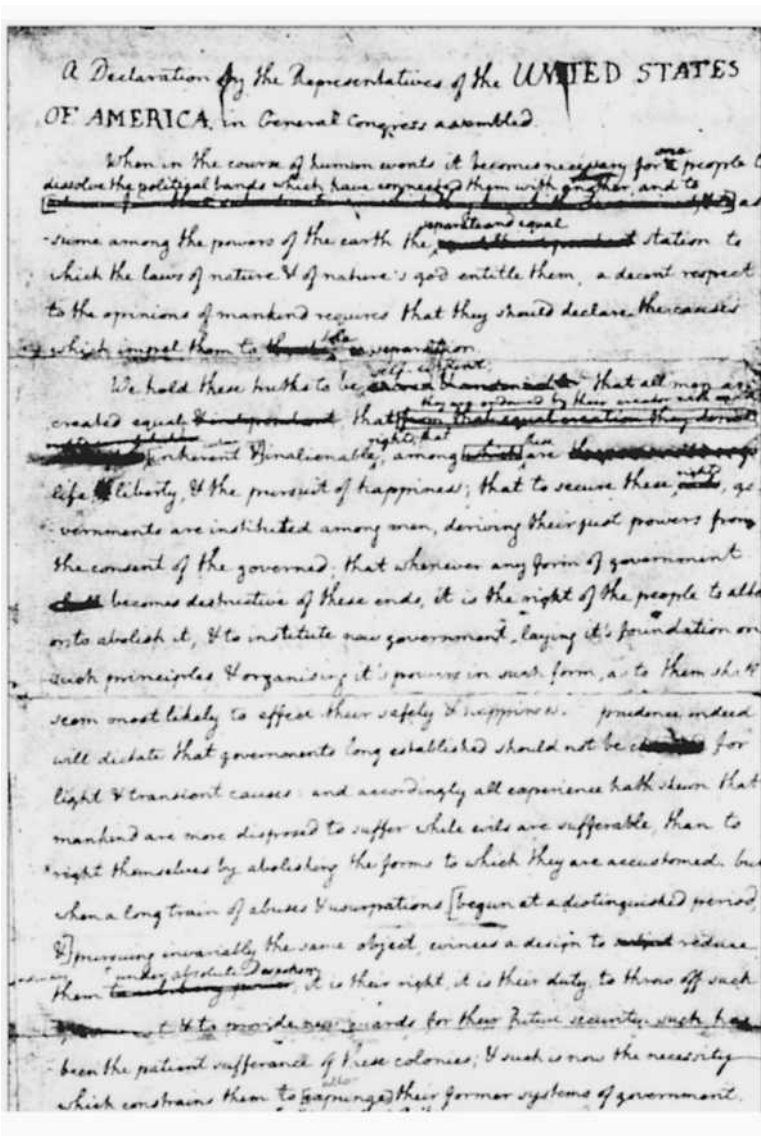 A Declaration by the Representatives of the UNITED STATES
OF AMERICA, in General Congress assembled.
When in the course of human events it becomes necessary for one people t
dissolve the political bands which have connected them with another, and to
as
separate and equal
-sume among the powers of the earth the station to
which the laws of nature & of nature's god entitle them, a decent respect
to the opinions of mankind requires that they should declare the causes
which impel them to the separation.
self-evident
We hold these truths to be that all men are
they are endowed by their creator with
created equal & independent, that from that equal creation they derive
rights; that these
inherent & inalienable, among which are
life & liberty, & the pursuit of happiness; that to secure these rights, go
-vernments are instituted among men, deriving their just powers from
the consent of the governed; that whenever any form of government
becomes destructive of these ends, it is the right of the people to alte
or to abolish it, & to institute new government, laying it's foundation on
such principles & organising it's powers in such form, as to them shall
seem most likely to effect their safety & happiness. prudence indeed
will dictate that governments long established should not be changed for
light & transient causes: and accordingly all experience hath shewn that
mankind are more disposed to suffer while evils are sufferable, than to
right themselves by abolishing the forms to which they are accustomed. but
when a long train of abuses & usurpations [begun at a distinguished period,
&] pursuing invariably the same object, evinces a design to subject reduce
under absolute Despotism
them it is their right, it is their duty, to throw off such
t & to provide new guards for their future security. such has
been the patient sufferance of these colonies; & such is now the necessity
alter
which constrains them to [expunge] their former systems of government.